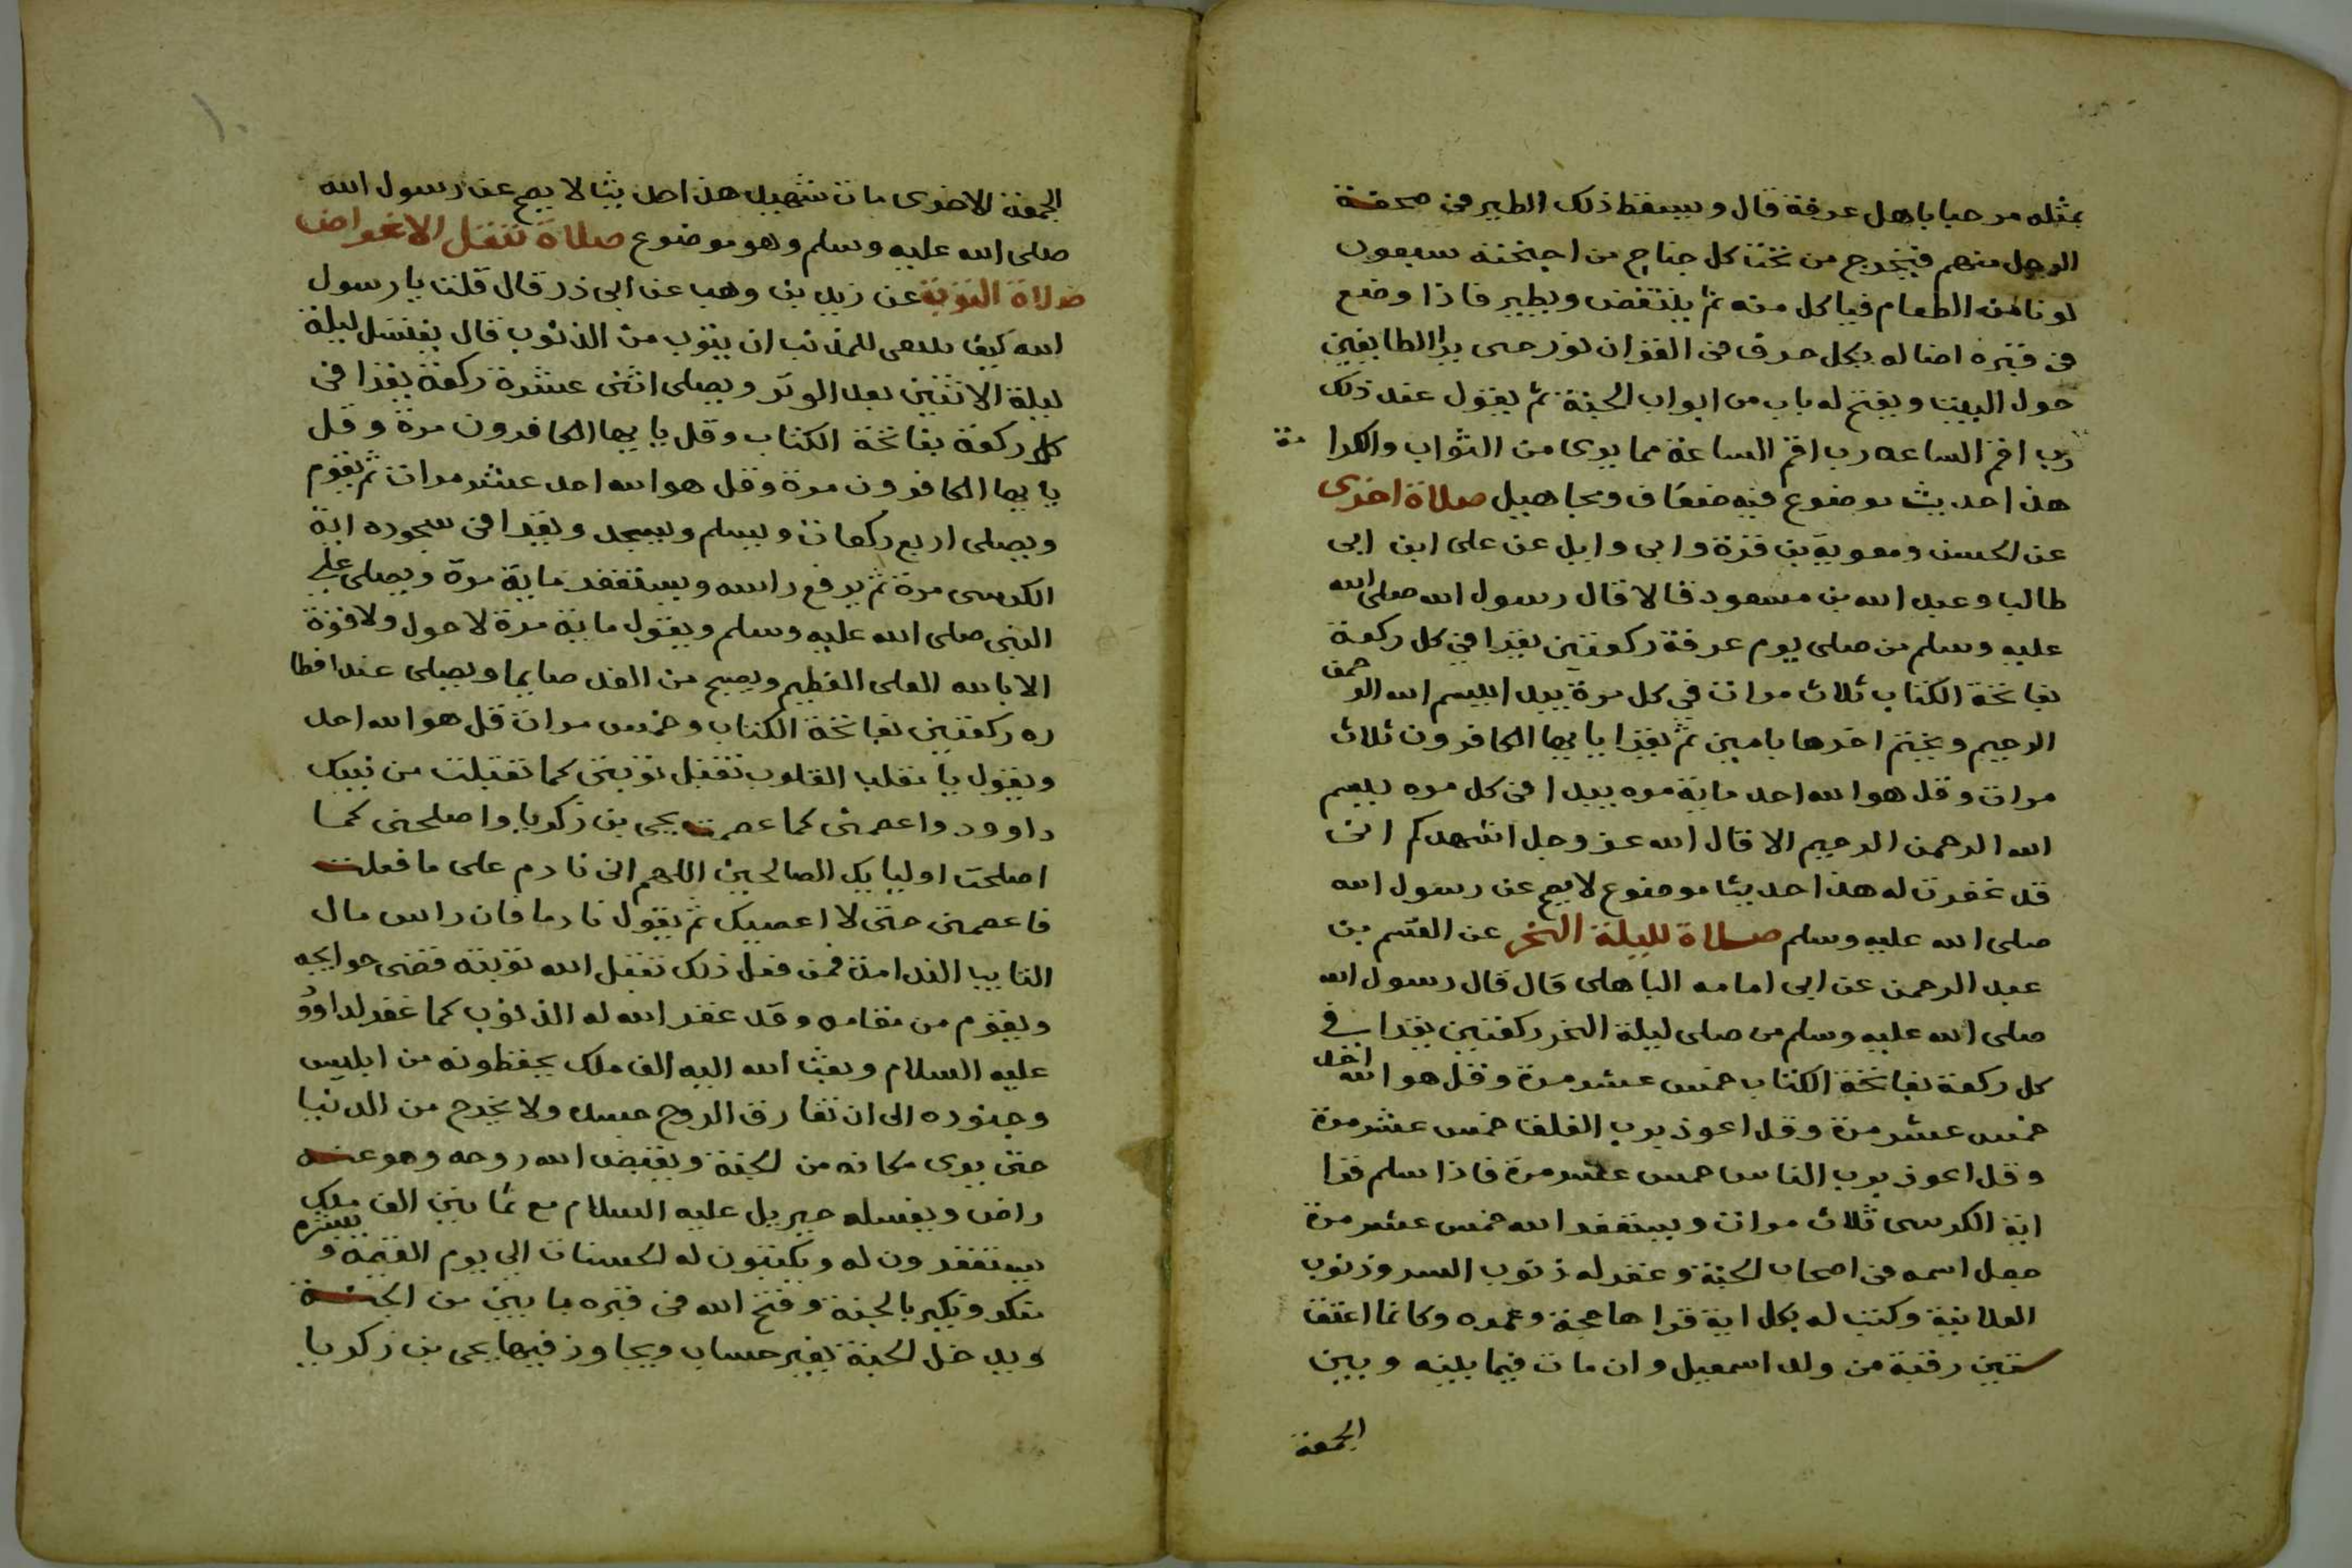 بمثله مرحبا باهل عرفة قال ويسقط ذلك الطير في صحفة
الرجل منهم فيخرج من تحت كل جناح من اجنحته سبعون
لونا من الطعام فياكل منه ثم ينتفض ويطير فاذا وضع
في قبره اضا له بكل حرف في القران نور حتى يرا الطايفين
حول البيت ويفتح له باب من ابواب الجنة ثم يقول عند ذلك
رب اقم الساعه رب اقم الساعة مما يرى من الثواب والكرا مة
هذا حديث موضوع فيه ضعاف ومجاهيل صلاة اخرى
عن الحسن ومعوية بن قرة وابي وايل عن على ابن ابى
طالب وعبد الله بن مسعود قالا قال رسول الله صلى الله
عليه وسلم من صلى يوم عرفة ركعتين يقرا في كل ركعة
بفاتحة الكتاب ثلاث مرات في كل مرة يبدا ببسم الله الرحمن
الرحيم ويختم اخرها بامين ثم يقرا يا يها الكافرون ثلاث
مرات وقل هو الله احد ماية مره يبدا في كل مره ببسم
الله الرحمن الرحيم الا قال الله عز وجل اشهدكم انى
قد غفرت له هذا حديث موضوع لا يصح عن رسول الله
صلى الله عليه وسلم صلاة لليلة النحر عن القسم بن
عبد الرحمن عن ابى امامه الباهلى قال قال رسول الله
صلى الله عليه وسلم من صلى ليلة النحر ركعتين يقرا في
كل ركعة بفاتحة الكتاب خمس عشر مرة وقل هو الله احد
خمس عشر مرة وقل اعوذ برب الفلق خمس عشر مرة
وقل اعوذ برب الناس خمس عشر مرة فاذا سلم قرا
اية الكرسى ثلاث مرات ويستغفر الله خمس عشر مرة
جعل اسمه في اصحاب الجنة وغفر له ذنوب السر وذنوب
العلانية وكتب له بكل اية قراها حجة وعمره وكانما اعتق
ستين رقبة من ولد اسمعيل وان مات فيما بينه وبين
الجمعة
الجمعة الاخرى مات شهيد هذا حديث لا يصح عن رسول الله
صلى الله عليه وسلم وهو موضوع صلاة تتعلق الاغراض
صلاة التوبة عن زيد بن وهب عن ابى ذر قال قلت يا رسول
الله كيف ينبغى للمذنب ان يتوب من الذنوب قال يغتسل ليلة
ليلة الاثنين بعد الوتر ويصلى اثنى عشرة ركعة يقرا في
كل ركعة بفاتحة الكتاب وقل يا يها الكافرون مرة وقل
يا يها الكافرون مرة وقل هو الله احد عشر مرات ثم يقوم
ويصلى اربع ركعات ويسلم ويسجد ويقرا في سجوده اية
الكرسى مرة ثم يرفع راسه ويستغفر ماية مرة ويصلى على
النبى صلى الله عليه وسلم ويقول ماية مرة لا حول ولا قوة
الا بالله العلى العظيم ويصبح من الغد صايما ويصلى عند افطا
ره ركعتين بفاتحة الكتاب وخمس مرات قل هو الله احد
ويقول يا مقلب القلوب تقبل توبتى كما تقبلت من نبيك
داوود واعصمنى كما عصمت يحيى بن زكريا واصلحنى كما
اصلحت اوليايك الصالحين اللهم انى نادم على ما فعلت
فاعصمنى حتى لا اعصيك ثم يقول نادما فان راس مال
التايب الندامة فمن فعل ذلك تقبل الله توبته قضى حوايجه
ويقوم من مقامه وقد غفر الله له الذنوب كما غفر لداوود
عليه السلام وبعث الله اليه الف ملك يحفظونه من ابليس
وجنوده الى ان تفارق الروح جسده ولا يخرج من الدنيا
حتى يرى مكانه من الجنة ويقبض الله روحه وهو عنه
راض ويغسله جبريل عليه السلام مع ثمانين الف ملك
يستغفرون له ويكتبون له الحسنات الى يوم القيمة ويبشره
منكر ونكير بالجنة وفتح الله في قبره بابين من الجنة
ويدخل الجنة بغير حساب ويجاور فيها يحيى بن زكريا